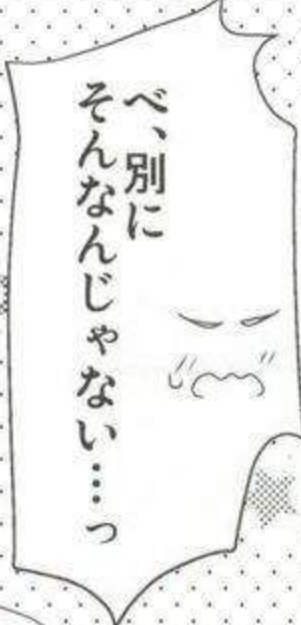 べ、別に
そんなんじゃない…っ